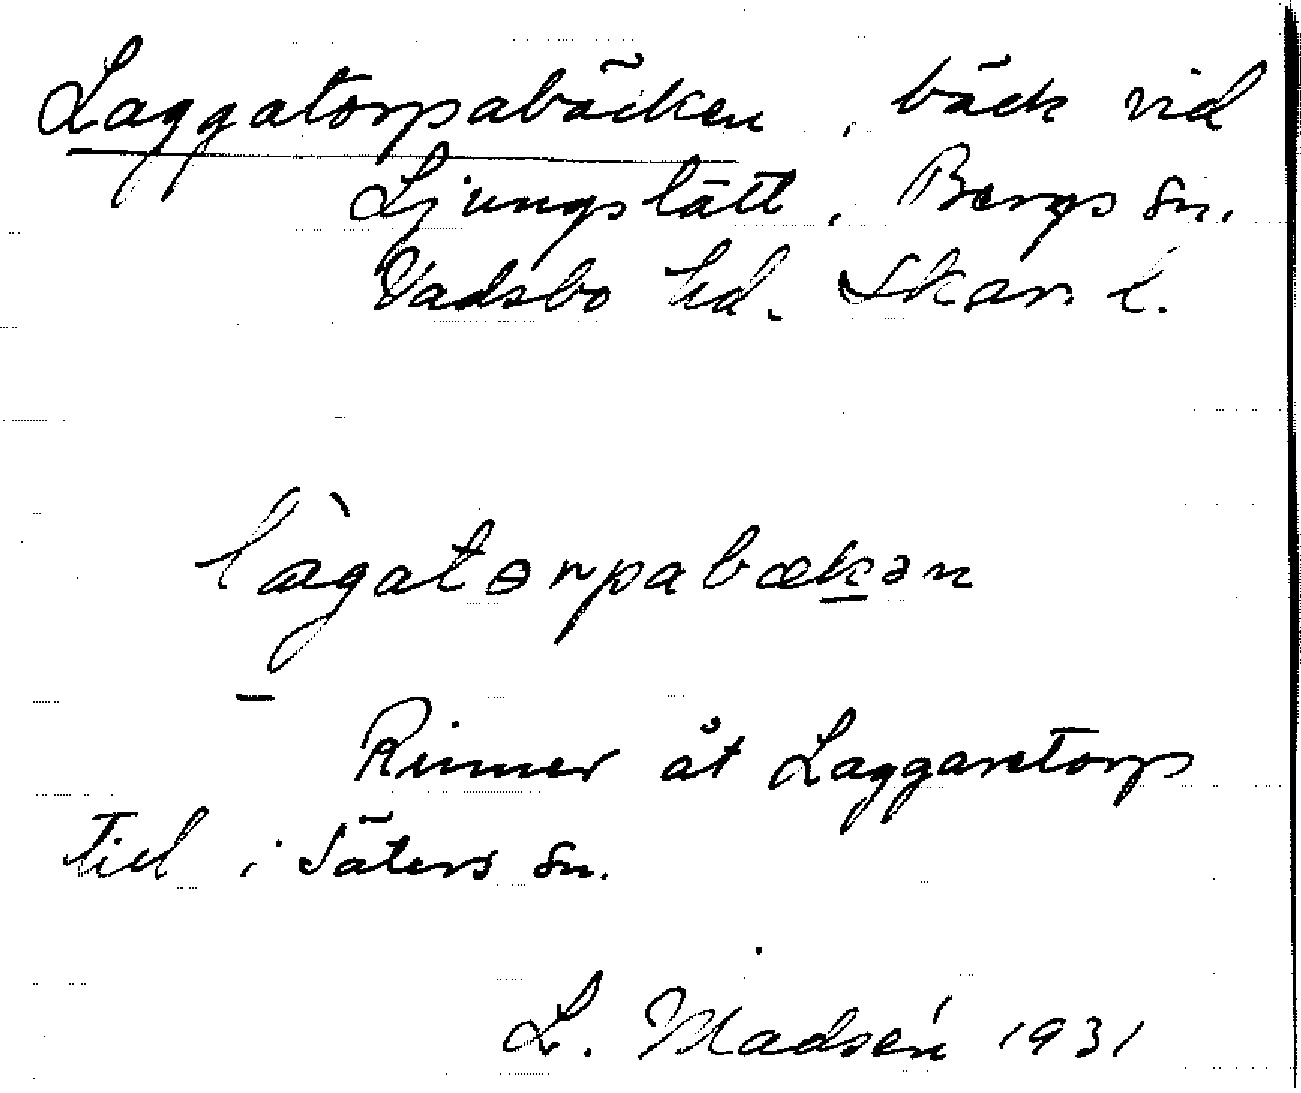 Laggatorpabäcken, bäck vid
Ljungslätt, Bergs sn.
Vadsbo hd. Skar. l.
là̀gatɵrpabækən
Rinner åt Laggaretorp
till i Säters sn.
L. Madsén 1931